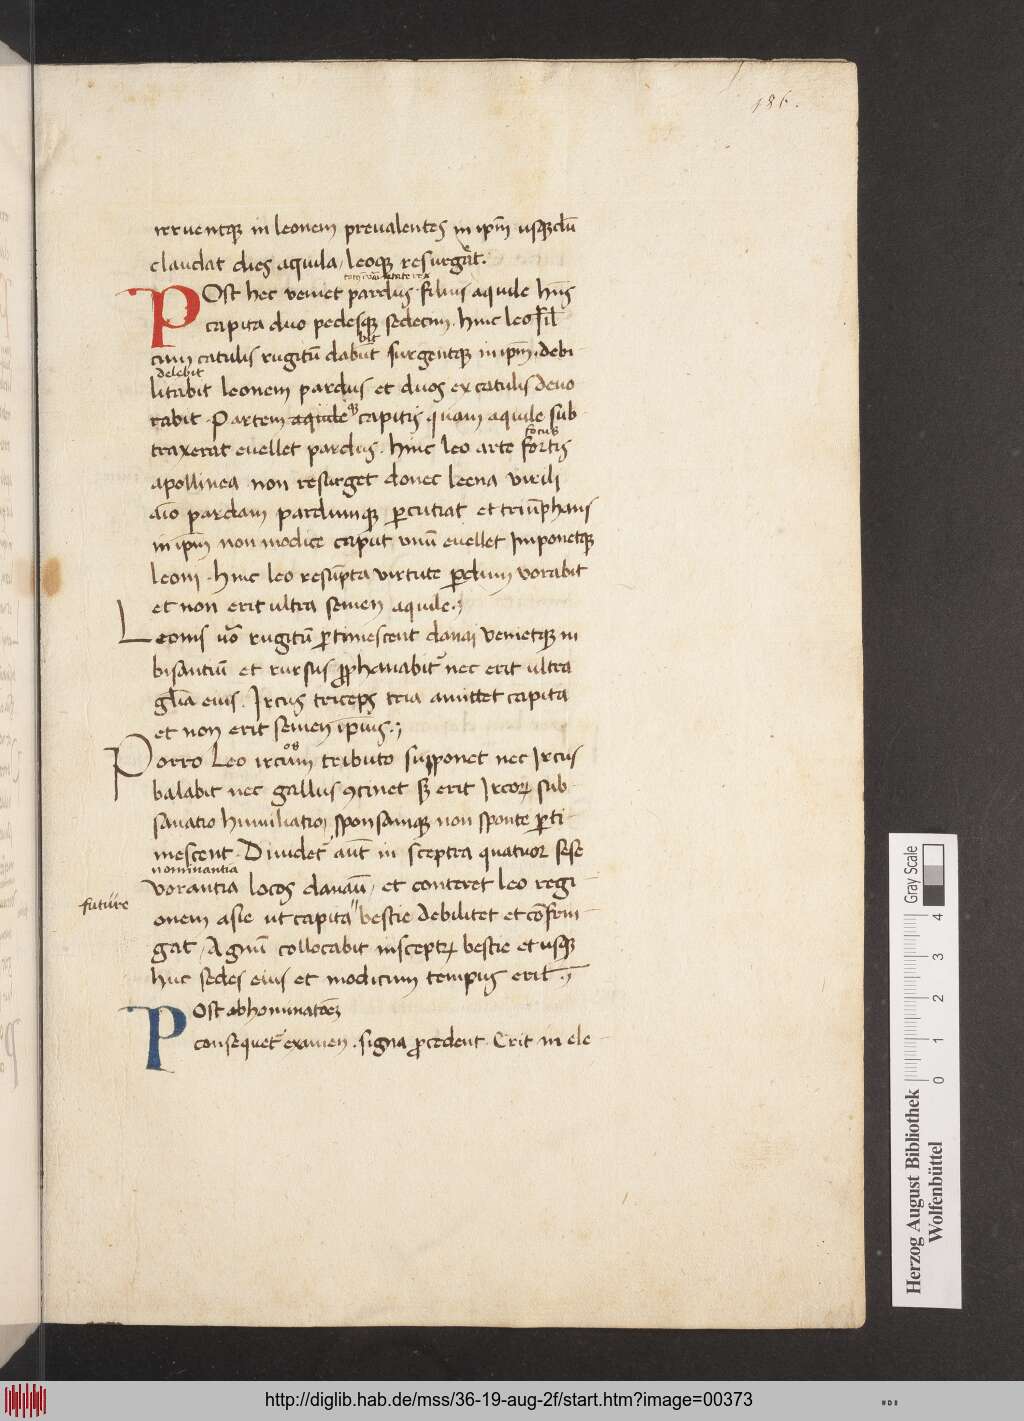 186.
irruentq in leonem prevalentes in ipm usqdu
claudat dies aquila / leoq resurgat.
Post hec veniet pardus filius aquile hns
capita duo pedesq sedecim. hinc leo fil
cum catulis rugitu dabut surgentq in ipm. debi
bit
delebit
litabit leonem pardus et duos ex catulis devo
rabit. Partem aquile capitis quam aquile sub
traxerat evellet pardus. hinc leo arte fortis
focus
apollinea non resurget donec leena virili
aio pardam pardumq percutiat et triuphans
in ipm non modice caput unu evellet Imponetq
leoni. hinc leo resupta virtute pdum vorabit
et non erit ultra semen aquile.
Leonis uo rugitu pertimescent danai venietq in
bisantiu et rursus prophanabit nec erit ultra
glia eius. Ircus triceps tria amittet capita
et non erit semen ipius.
Porro Leo ircum tributo supponet nec Ircus
os
balabit nec gallus 9tinet s3 erit Ircor sub
sanatio humiliatio, sponsamq non sponte perti
mescent. Dividet aut in sceptra quatuor sese
nominantia
vorantia locos danau / et conteret leo regi
future
onem asie ut capita bestie debilitet et cofrin
gat / Agnu collocabit in sceptr bestie et usq
huc sedes eius et modicum tempus erit.
Post abhominatoez
consequet examen. signa procedent. Erit in ele
Herzog August Bibliothek
Wolfenbüttel
Gray Scale
0 1 2 3 4
http://diglib.hab.de/mss/36-19-aug-2f/start.htm?image=00373